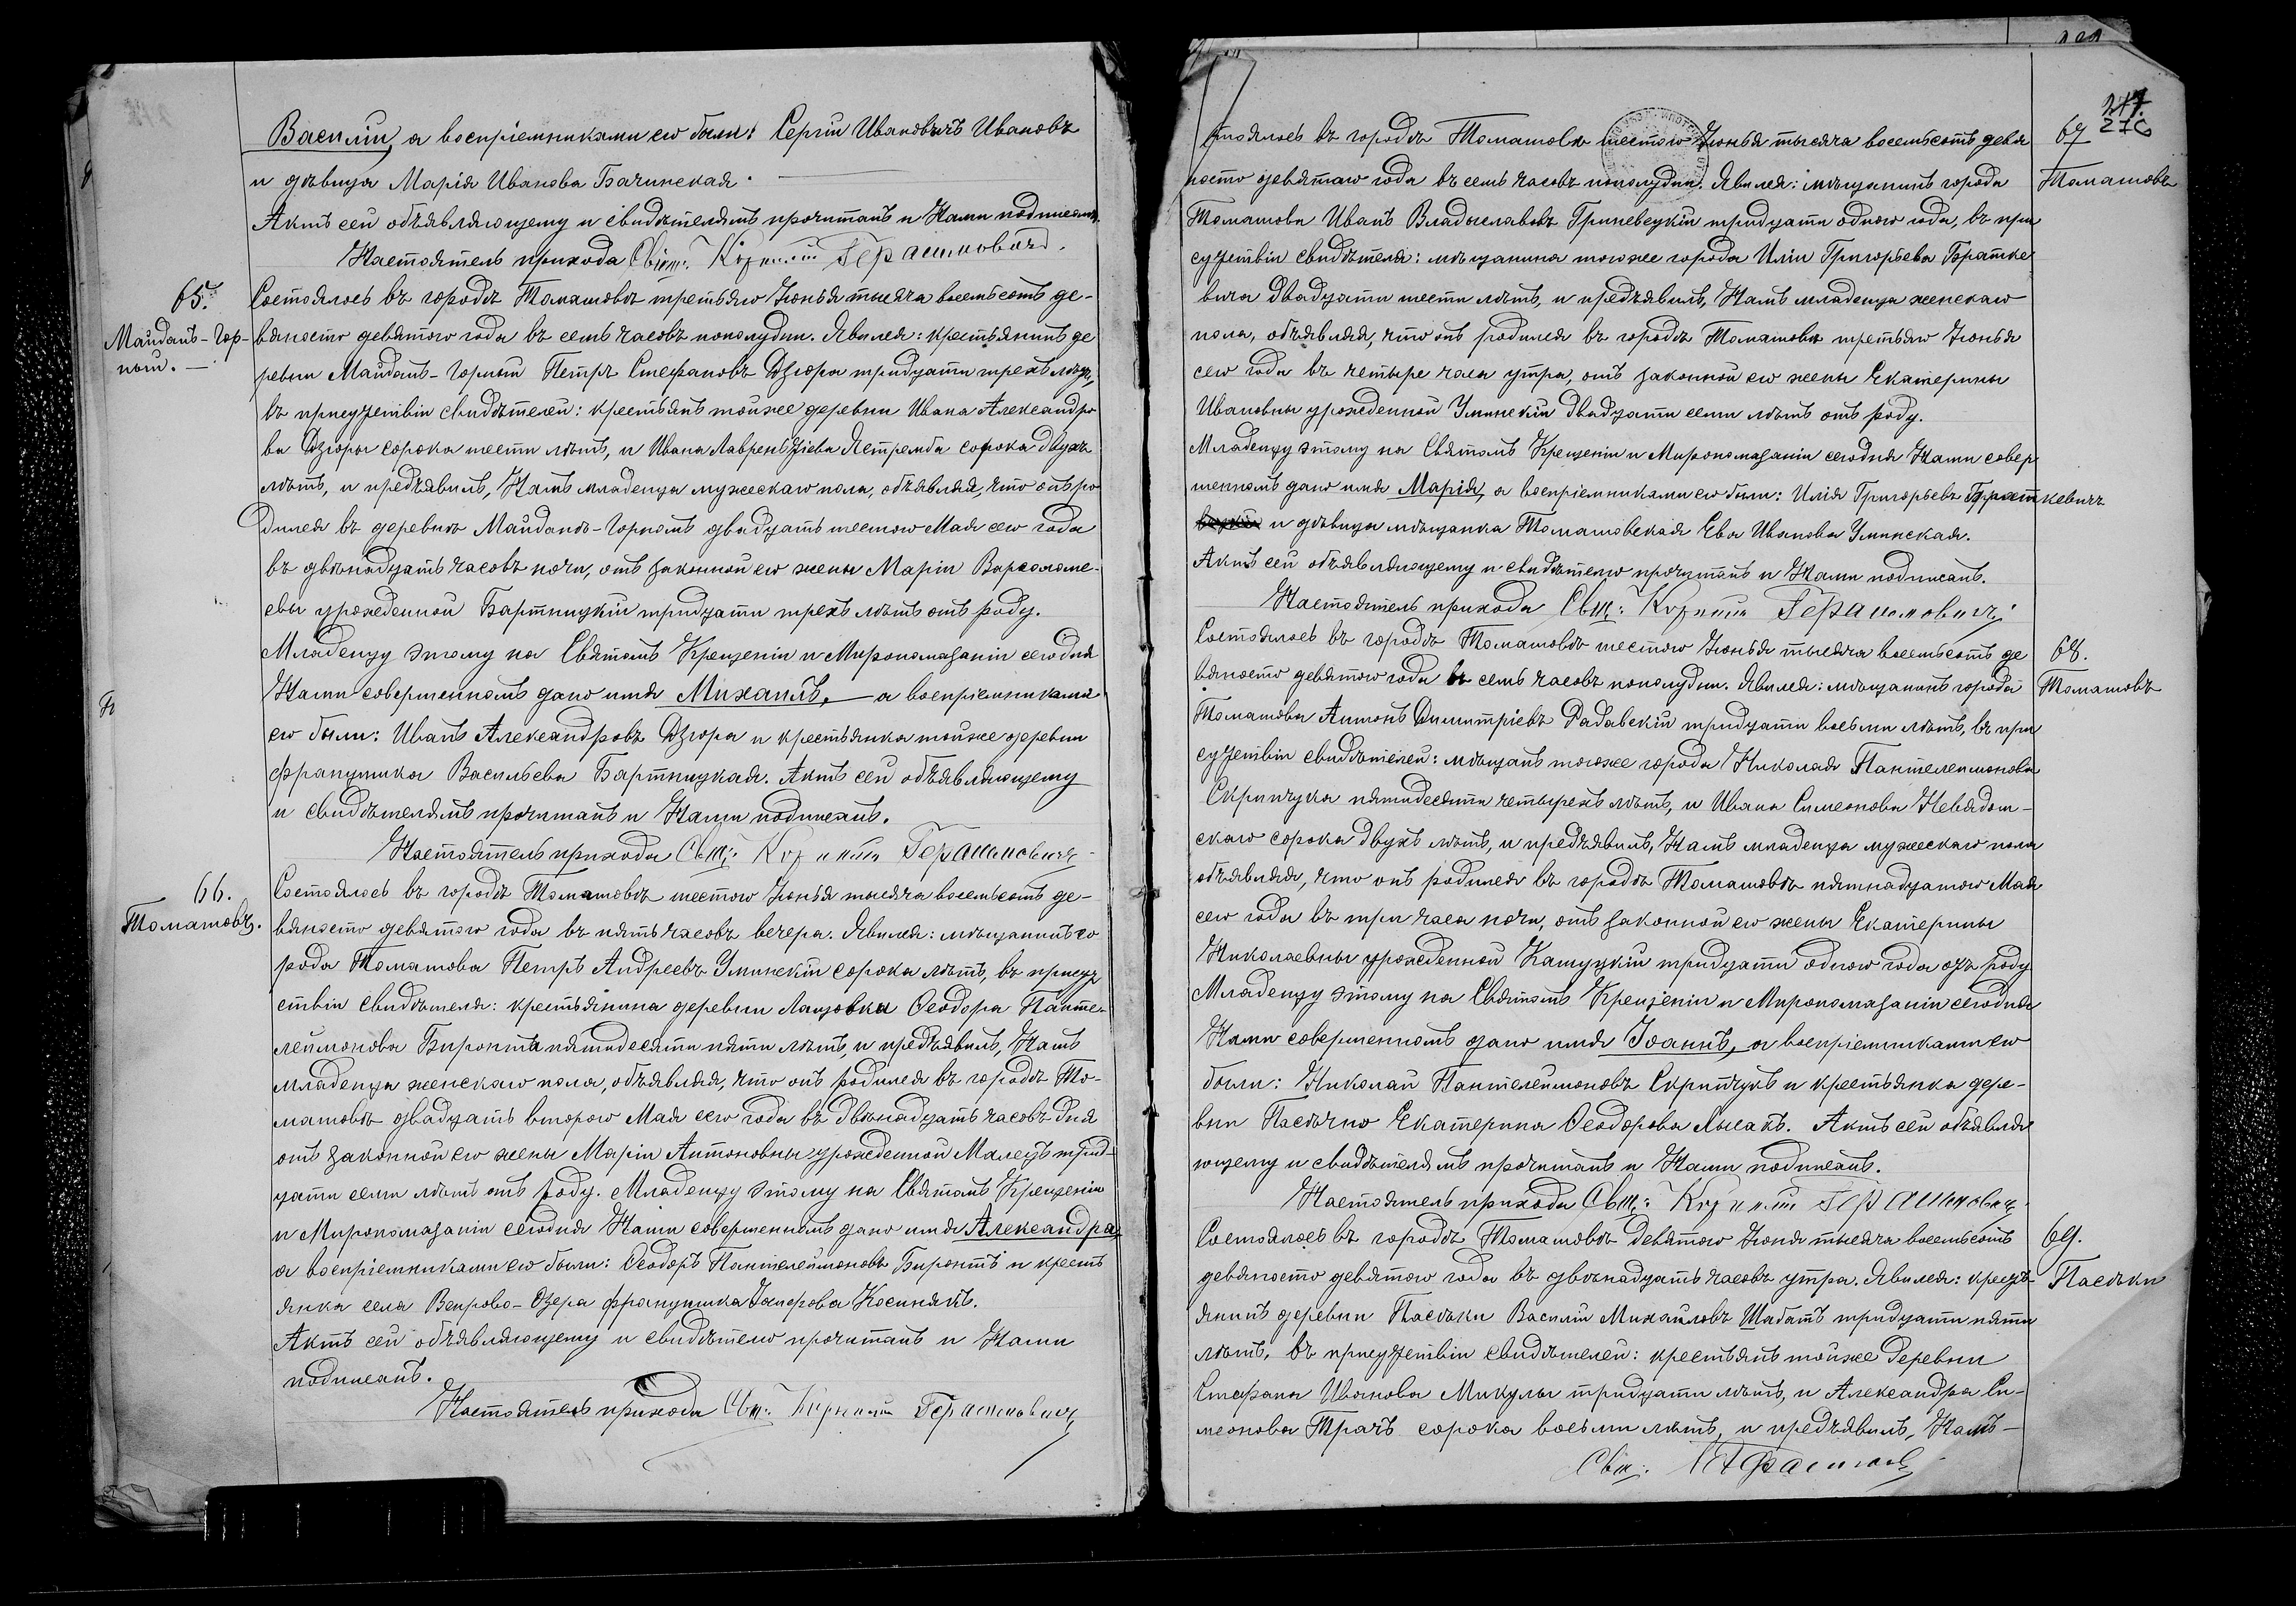 Василій, а воспріемниками его были: Сергій Ивановичъ Ивановъ
и дѣвица Марія Иванова Бачинская.
Актъ сей объявляющему и свидѣтелямъ прочитанъ и Нами подписанъ.
Настоятель прихода Свящ. Корнилій Герасимовичъ.
65.
Майданъ-Гор-
ный.
Состоялось въ городѣ Томашовѣ третьяго Іюнья тысяча восемьсотъ де-
вяносто девятого года въ семь часовъ пополудни. Явился: крестьянинъ де
ревни Майданъ-Горный Петръ Стефановъ Дзюра тридцати трехъ лѣтъ,
въ присутствіи свидѣтелей: крестьянъ тойже деревни Ивана Александро
ва Дзюры сорока шести лѣтъ, и Ивана Лаврентіева Ястремба сорока двухъ
лѣтъ, и предъявилъ, Намъ младенца мужескаго пола, объявляя, что онъ ро
дился въ деревнѣ Майданѣ-Горномъ двадцать шестого Мая сего года
въ двѣнадцать часовъ ночи, отъ законной его жены Маріи Варѳоломе-
евы урожденной Бартницкій тридцати трехъ лѣтъ отъ роду.
Младенцу этому на Святомъ Крещеніи и Миропомазаніи сегодня
Нами совершенномъ дано имя Михаилъ, — а воспріемниками
его были: Иванъ Александровъ Дзюра и крестьянка тойже деревни
Франушка Васильева Бартницкая. Актъ сей объявляющему
и свидѣтелямъ прочитанъ и Нами подписанъ.
Настоятель прихода Свящ: Корнилій Герасимовичъ
66.
Томашовъ.
Состоялось въ городѣ Томашовѣ шестого Іюнья тысяча восемьсотъ де-
вяносто девятого года въ пять часовъ вечера. Явился: мѣщанинъ го
рода Томашова Петръ Андреевъ Уминскій сорока лѣтъ, въ присут
ствіи свидѣтеля: крестьянина деревни Лащовки Ѳеодора Панте-
леймонова Биронтъ пятидесяти пяти лѣтъ, и предъявилъ, Намъ
младенца женскаго пола, объявляя, что онъ родился въ городѣ То-
машовѣ двадцать второго Мая сего года въ двѣнадцать часовъ дня
отъ законной его жены Маріи Антоновны урожденной Малецъ трид-
цати семи лѣтъ отъ роду. Младенцу этому на Святомъ Крещеніи
и Миропомазаніи сегодня Нами совершенномъ дано имя Александра,
а воспріемниками его были: Ѳеодоръ Пантелеймоновъ Биронтъ и кресть
янка села Вепрово-Озера Франушка Косинякъ.
Актъ сей объявляющему и свидѣтелю прочитанъ и Нами
подписанъ.
Настоятель прихода Свящ: Корнилій Герасимовичъ
276
67
Томашовъ
Состоялось въ городѣ Томашовѣ шестого Іюнья тысяча восемьсотъ девя
носто девятаго года въ семь часовъ пополудни. Явился: мѣщанинъ города
Томашова Иванъ Владыславовъ Гриневецкій тридцати одного года, въ при
сутствіи свидѣтеля: мѣщанина тогоже города Иліи Григорьева Братке
вича двадцати шести лѣтъ, и предъявилъ, Намъ младенца женскаго
пола, объявляя, что онъ родился въ городѣ Томашовѣ третьяго Іюнья
сего года въ четыре часа утра, отъ законной его жены Екатерины
Ивановны урожденной Уминскій двадцати семи лѣтъ отъ роду.
Младенцу этому на Святомъ Крещеніи и Миропомазаніи сегодня Нами совер
шенномъ дано имя Марія, а воспріемниками его были: Илія Григорьевъ Браткевичъ
и дѣвица мѣщанка Томашовская Ева Иванова Уминская.
Актъ сей объявляющему и свидѣтелю прочитанъ и Нами подписанъ.
Настоятель прихода Свящ: Корнилій Герасимовичъ
68.
Томашовъ
Состоялось въ городѣ Томашовѣ шестого Іюнья тысяча восемьсотъ де
вяносто девятого года въ семь часовъ пополудни. Явился: мѣщанинъ города
Томашова Антонъ Димитріевъ Радавскій тридцати восьми лѣтъ, въ при
сутствіи свидѣтелей: мѣщанъ тогоже города Николая Пантелеимонова
Скрипчука пятидесяти четырехъ лѣтъ, и Ивана Симеонова Невядом-
скаго сорока двухъ лѣтъ, и предъявилъ, Намъ младенца мужескаго пола
объявляя, что онъ родился въ городѣ Томашовѣ пятнадцатого Мая
сего года въ три часа ночи, отъ законной его жены Екатерины
Николаевны урожденной Кашуцкій тридцати одного года отъ роду
Младенцу этому на Святомъ Крещеніи и Миропомазаніи сегодня
Нами совершенномъ дано имя Іоаннъ, а воспріемниками его
были: Николай Пантелеймоновъ Скрипчукъ и крестьянка дере-
вни Пасѣчно Екатерина Ѳеодорова Лысакъ. Актъ сей объявля
ющему и свидѣтелямъ прочитанъ и Нами подписанъ.
Настоятель прихода Свящ: Корнилій Герасимовичъ
69.
Пасѣки
Состоялось въ городѣ Томашовѣ девятого Іюня тысяча восемьсотъ
девяносто девятого года въ двѣнадцать часовъ утра. Явился: кресть-
янинъ деревни Пасѣки Василій Михаиловъ Шабатъ тридцати пяти
лѣтъ, въ присутствіи свидѣтелей: крестьянъ тойже деревни
Стефана Иванова Микулы тридцати лѣтъ, и Александра Си-
меонова Трачъ сорока восьми лѣтъ, и предъявилъ, Намъ —
Свящ: